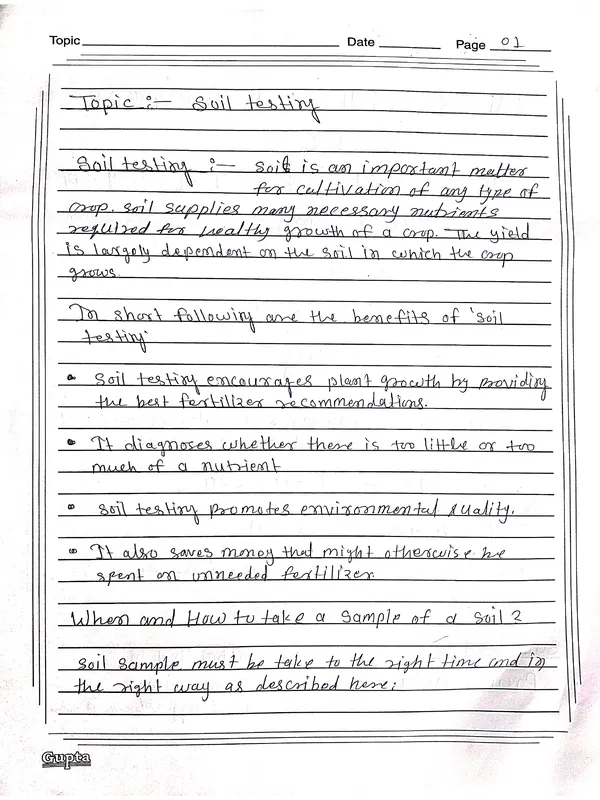 Topic Date Page 01
Topic :- Soil testing
Soil testing :- Soil is an important matter
for cultivation of any type of
crop. soil supplies many necessary nutrients
required for healthy growth of a crop. The yield
is largely dependent on the soil in which the crop
grows.
In short following are the benefits of 'soil
testing'
• Soil testing encourages plant growth by providing
the best fertilizer recommendations.
• It diagnoses whether there is too little or too
much of a nutrient
• soil testing promotes environmental quality.
• It also saves money that might otherwise be
spent on unneeded fertilizer.
When and How to take a sample of a soil ?
soil sample must be take to the right time and in
the right way as described here:
Gupta